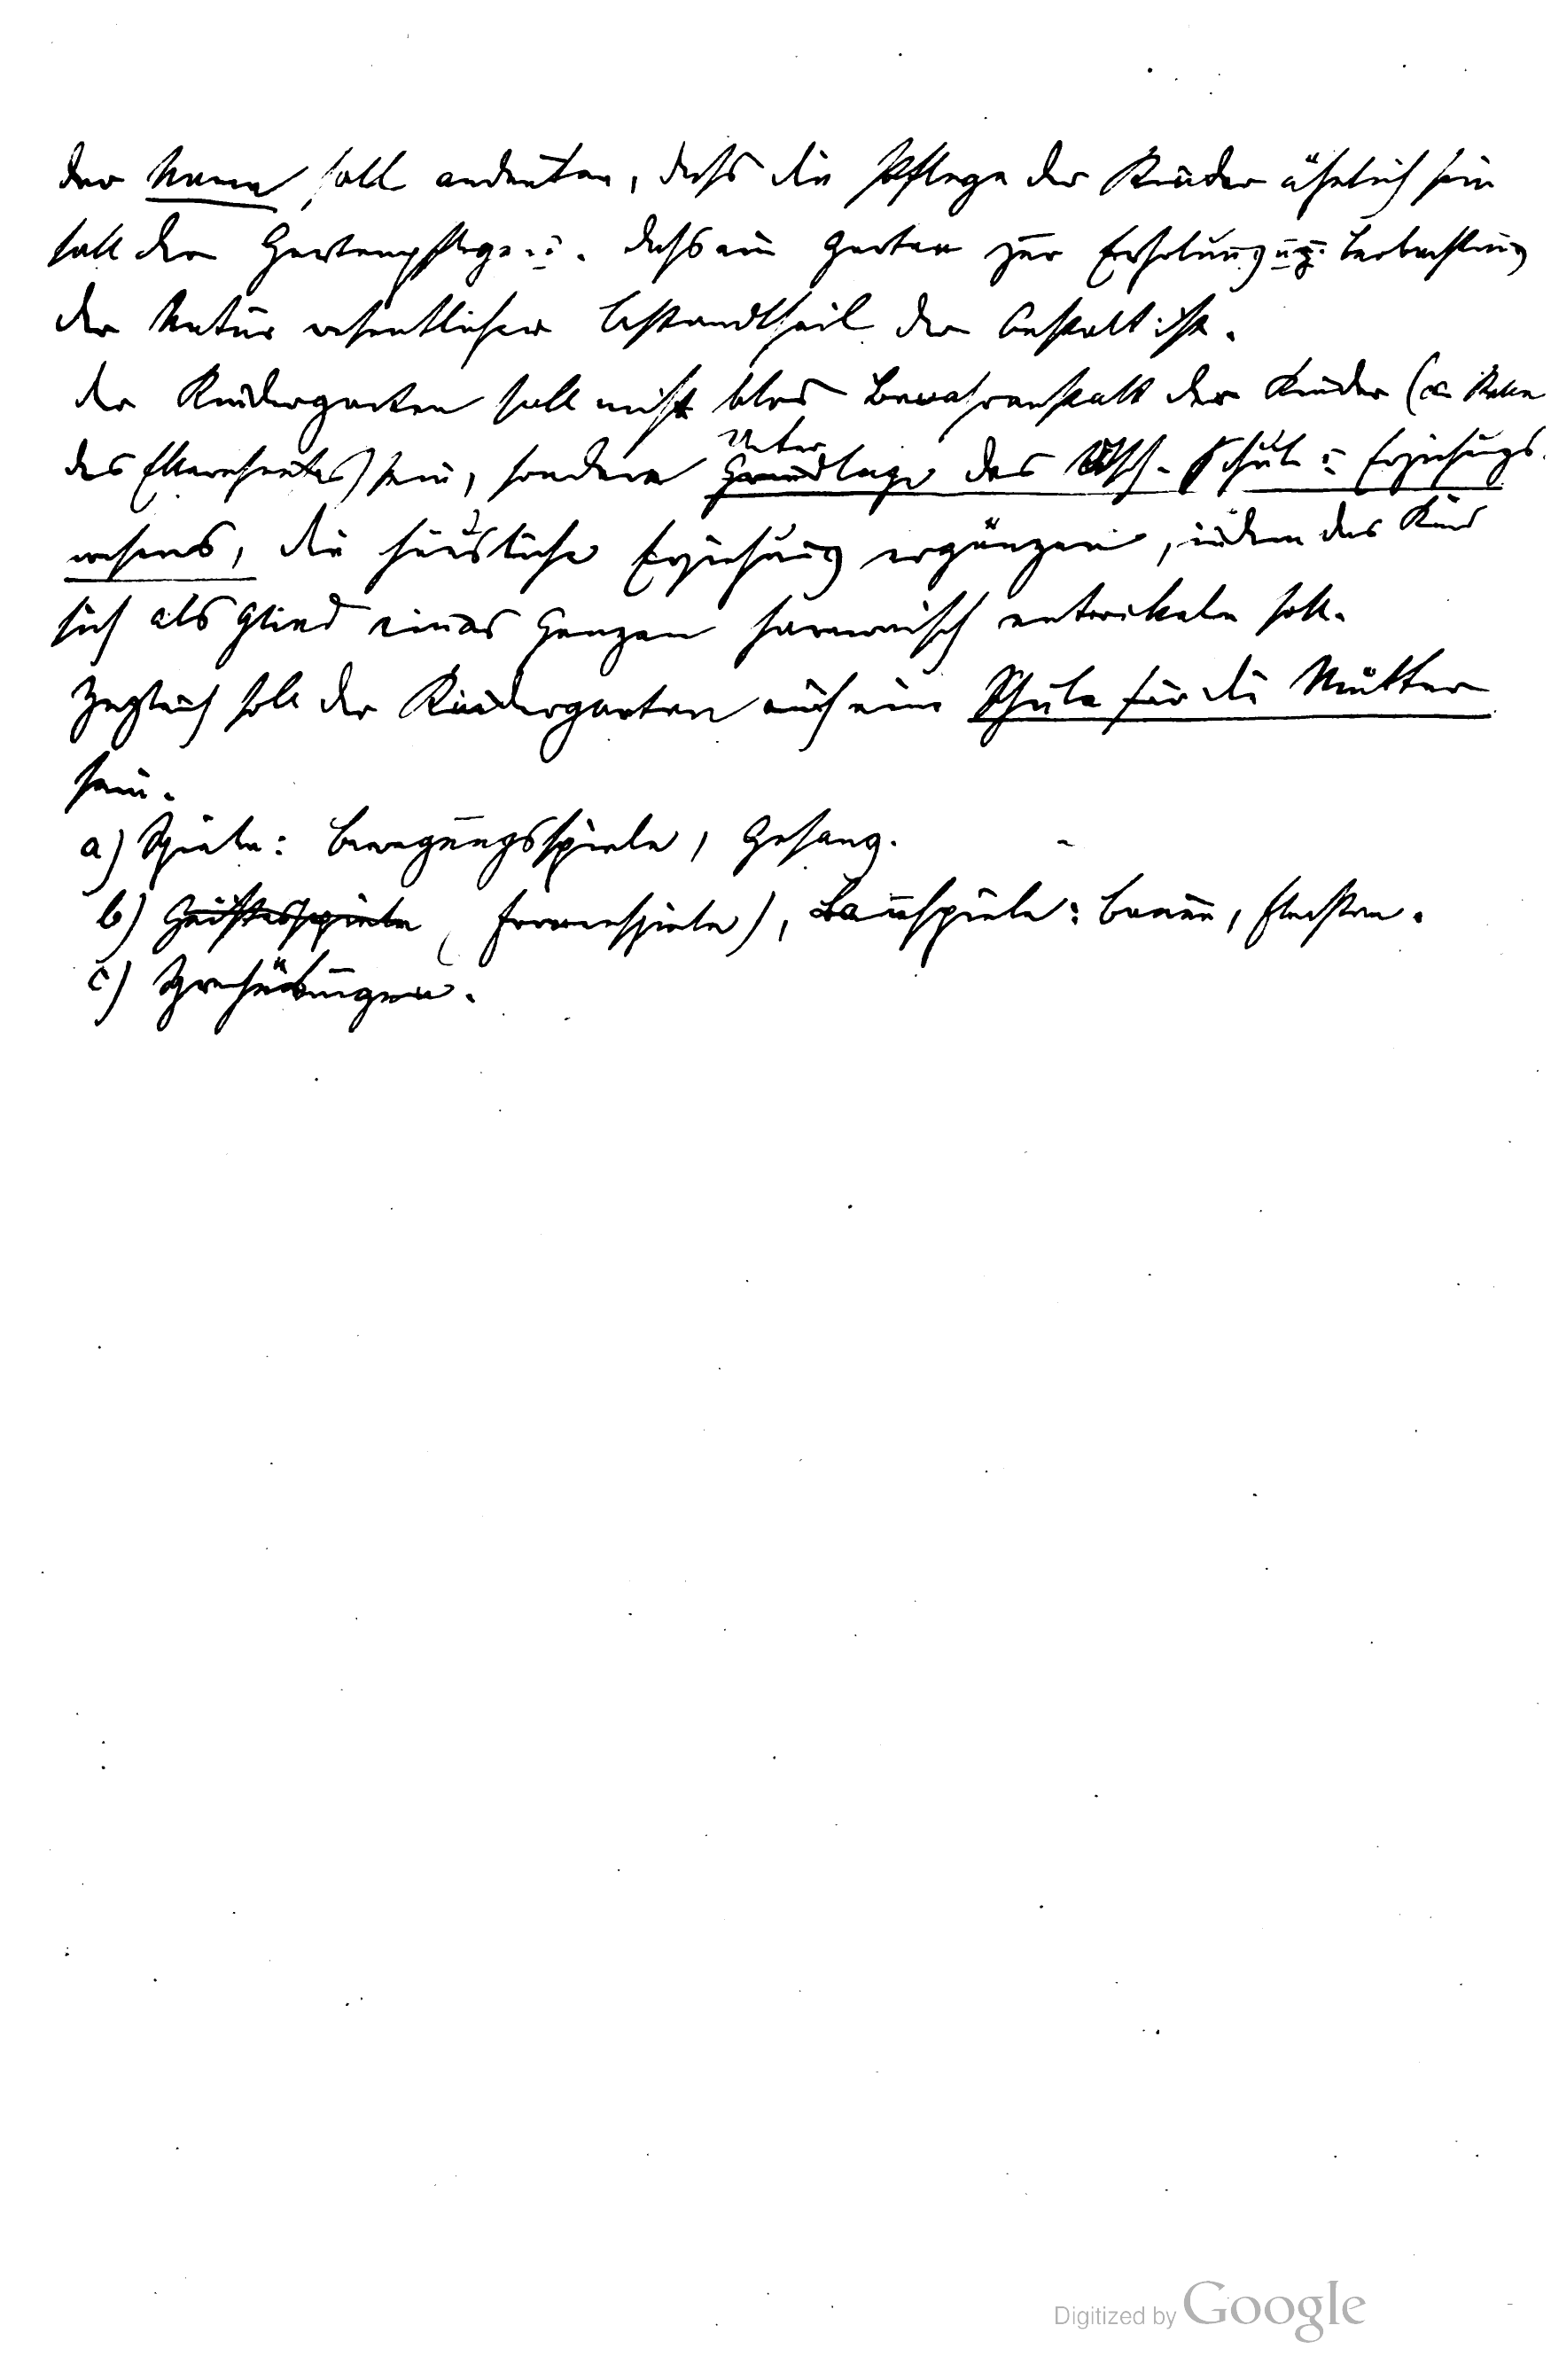 der Name soll andeuten, dass die Pflege der Kinder ähnlich sein
soll der Gartenpflege u. dass ein Garten zur Erholung u. z. Beobachtung
der Natur wesentlicher Bestandtheil der Anstalt ist.
der Kindergarten soll nicht blos Bewahranstalt der Kinder (
des Elternhauses) sein, sondern Unter
Grundlage des Schul u Erziehungs-
wesens, die häusliche Erziehung ergänzen, indem das Kind
sich als Glied eines Ganzen harmonisch entwickeln soll.
Zugleich soll der Kindergarten auch eine Schule für die Mütter
sein.
a) Spiele: Bewegungsspiele, Gesang.
b) Geistesspiele (Formenspiele), Bauspiele: Bauen, Flechten.
c) Sprechübungen.
Digitized by Google